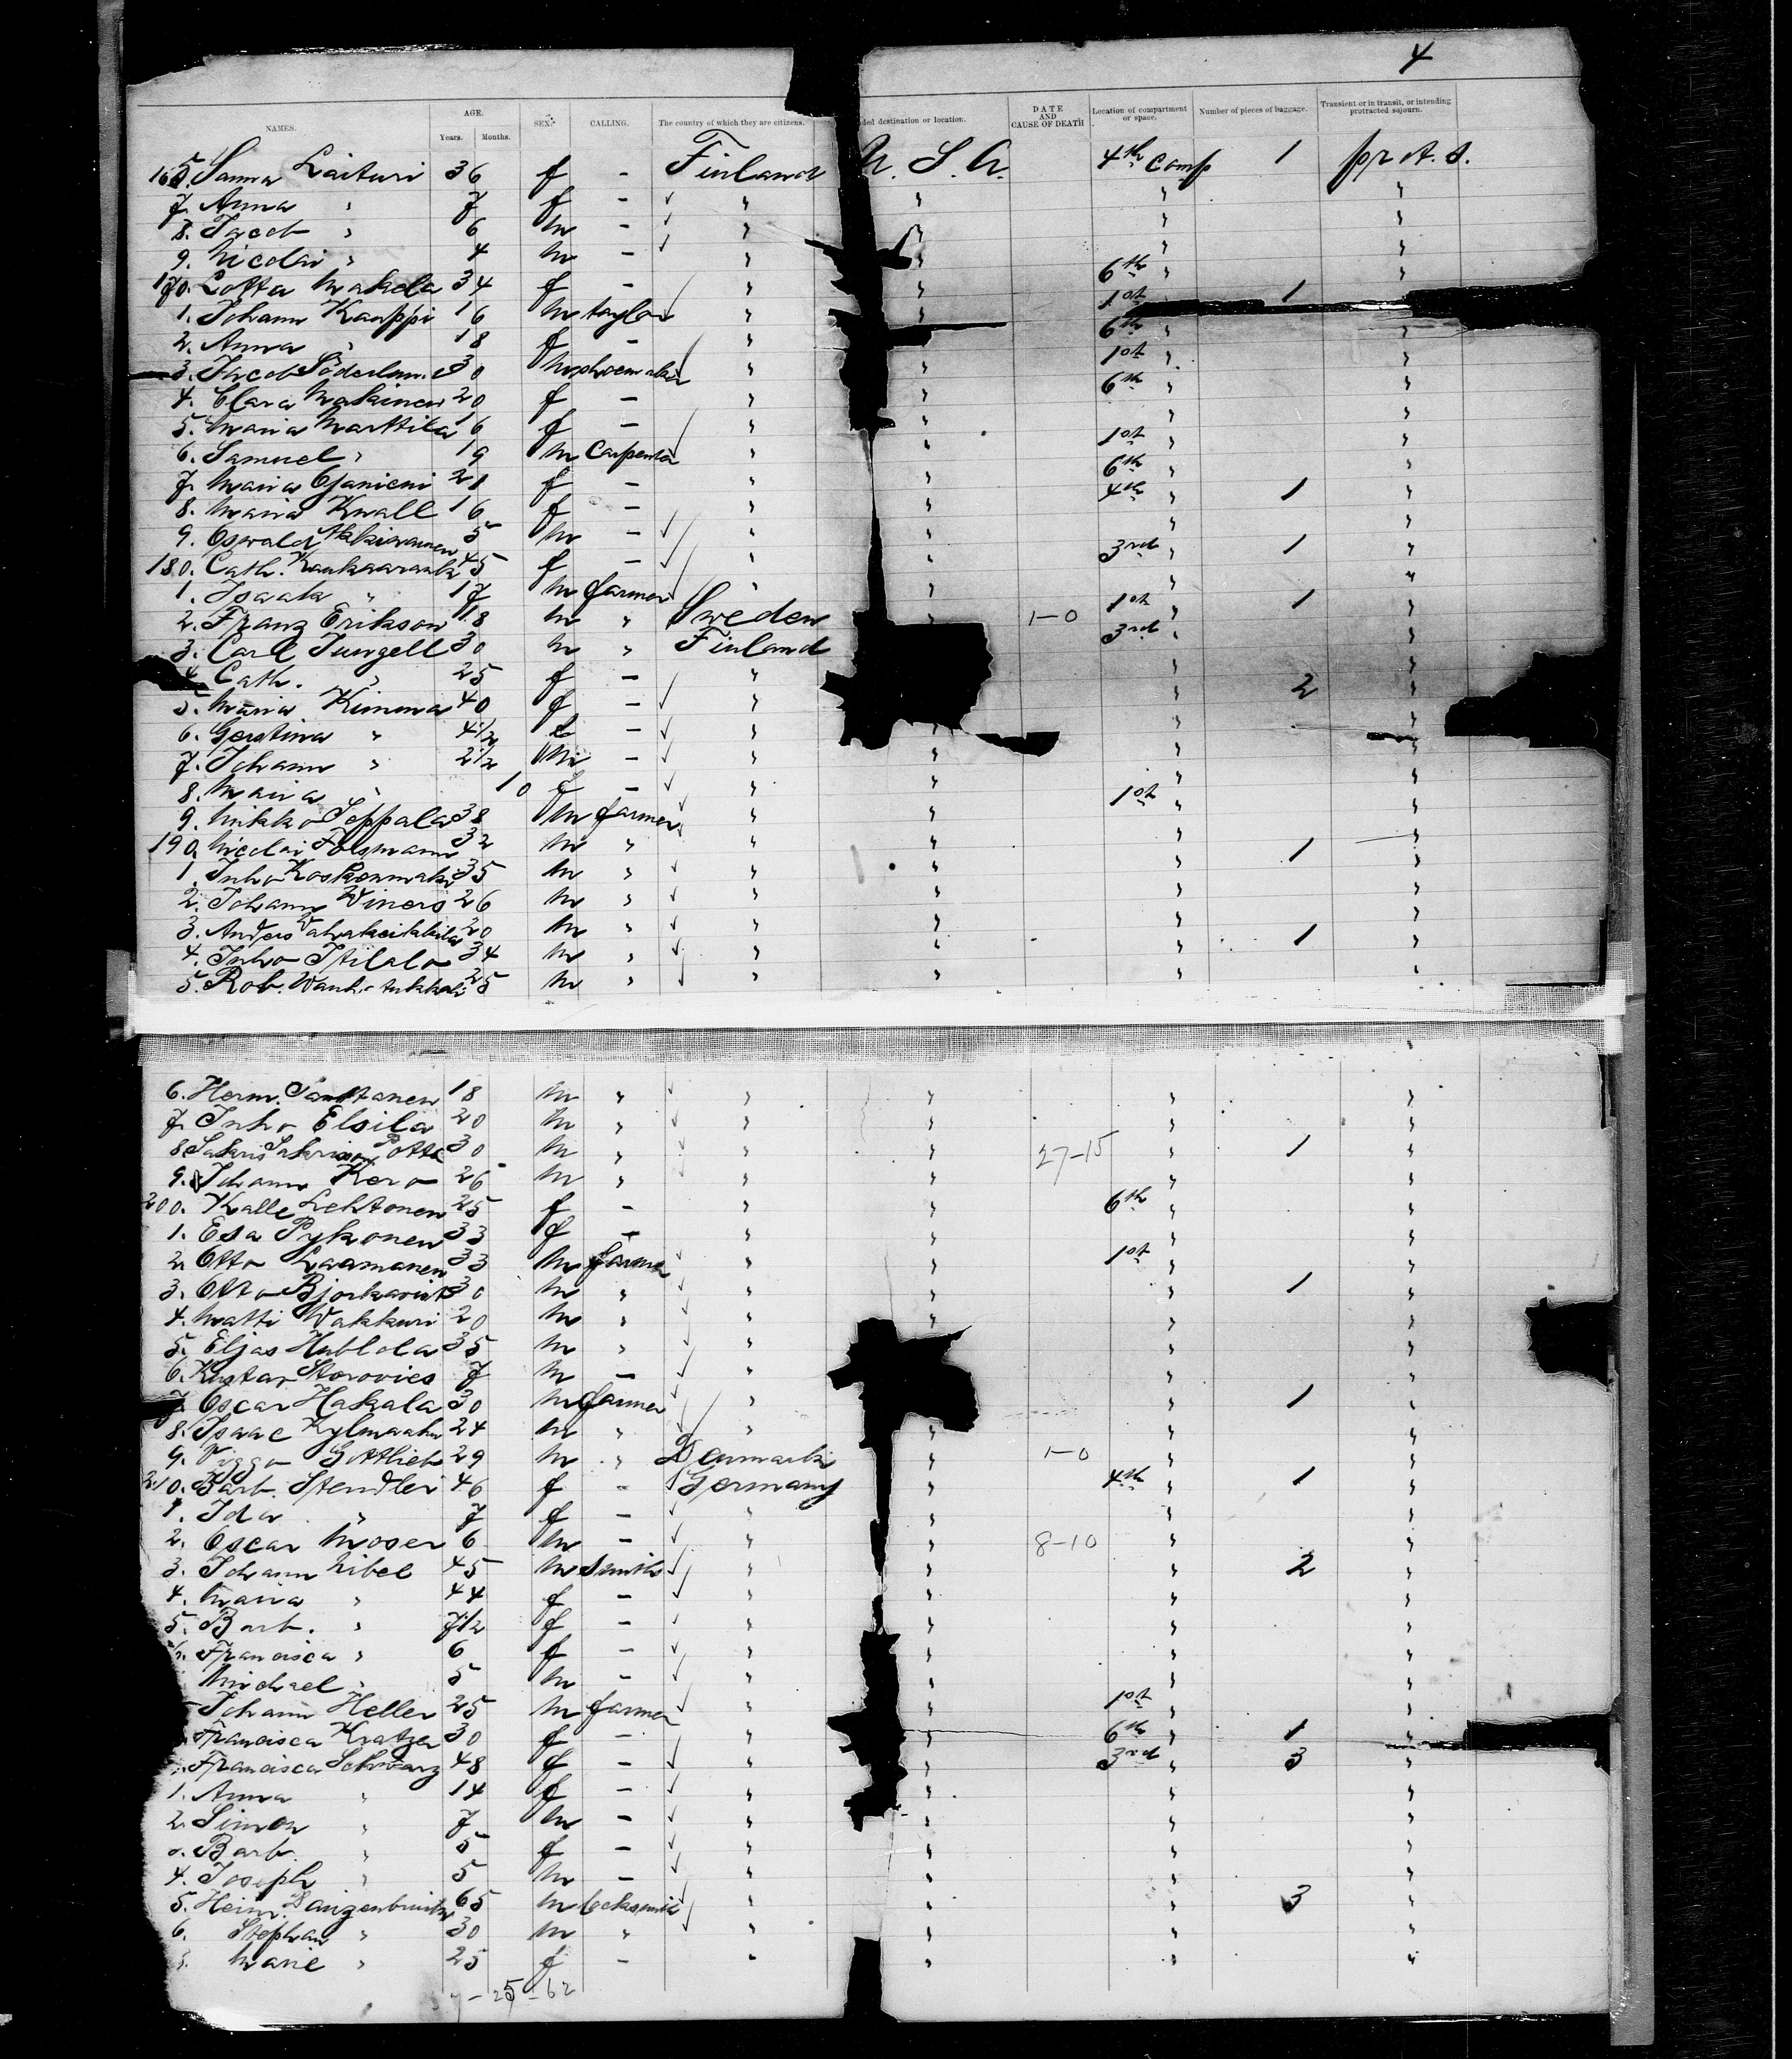 4
NAMES. AGE. Years. Months. SEX. CALLING. The country of which they are citizens. ded destination or location. DATE AND CAUSE OF DEATH Location of compartment or space. Number of pieces of baggage. Transient or in transit, or intending protracted sojourn.
Sanna Laituri 36 f - Finland U. S. A. 4th Comp 1 pr. A. S.
7. Anna " 7 f - " " " "
8. Jacob " 6 m - " " " "
9. Nicolai " 4 m - " " " "
170. Lotta Makela 34 f - " " 6th "
1. Johann Kauppi 16 m taylor " " 1st " 1
2. Anna " 18 f - " " 6th " "
3. Jacob Söderlun 30 m shoemaker " " 1st " "
4. Clara Makinen 20 f - " " 6th " "
5. Maria Marttila 16 f - " " " "
6. Samuel " 19 m Carpenter " " 1st " "
7. Maria 21 f - " " 6th " "
8. Maria Knall 16 f - " " 4th " 1 "
9. Oswald 5 m - " " " "
180. Cath. 45 f - " " 3rd " 1 "
1. Isaak " 17 m farmer " " " "
2. Franz Erikson 18 m " Sweden " 1-0 1st " 1 "
3. Carl Jungell 30 m " Finland 3rd " "
4. Cath. " 25 f - " " "
5. Maria Kimma 40 f - " " 2 "
6. " 4 1/2 f - " " "
7. Johann " 2 1/2 m - " " " "
8. Maria " 10 f - " " " "
9. Mikko Seppala 38 m farmer " " 1st " "
190. Nicolai 32 m " " " " "
1. Juho Koskenmaki 35 m " " " " 1 "
2. Johann Winers 26 m " " " " "
3. Anders 20 m " " " " "
4. Juho Itilalo 34 m " " " " 1 "
5. Rob. 25 m " " " " "
6. Herm. Santtanen 18 m " " " " "
7. Juho Elsila 20 m " " " " "
8. Sakris 30 m " " " 27-15 " 1 "
9. Johann Kero 26 m " " " " "
200. Kalle Lehtonen 25 f - " " 6th " "
1. Esa Pykonen 33 f - " " " "
2. Otto Laamanen 33 m farmer " " 1st " "
3. Otto Bjorkqvist 30 m " " " " 1 "
4. Matti Wakkuri 20 m " " " " "
5. Eljas Huhlola 35 m " " " "
6. Kustar Storovics 7 m - " " "
7. Oscar Hakala 30 m farmer " " 1 "
8. Isaac Kylmaaho 24 m " " " " "
9. Viggo Gottlieb 29 m " Denmark " 1-0 " "
210. Barb. Stendler 46 f - Germany " 4th " 1 "
1. Ida " 7 f - " " " "
2. Oscar Moser 6 m - " " 8-10 " "
3. Johann Nibel 45 m Smith " " " 2 "
4. Maria " 44 f - " " " "
5. Barb. " 7 1/2 f - " " " "
Francisca " 6 f - " " " "
Michael " 5 m - " " " "
Johann Heller 25 m farmer " " 1st " "
Francisca Kratzer 30 f - " " 6th " 1 "
Francisca Schwarz 48 f - " " 3rd " 3 "
1. Anna " 14 f - " " " "
2. Simon " 7 m - " " " "
Barb. " 5 f - " " " "
4. Joseph " 5 m - " " " "
5. Heinr. 65 m locksmith " " " 3 "
6. Stephan " 30 m " " " " "
Marie " 25 f - " " " "
25-62